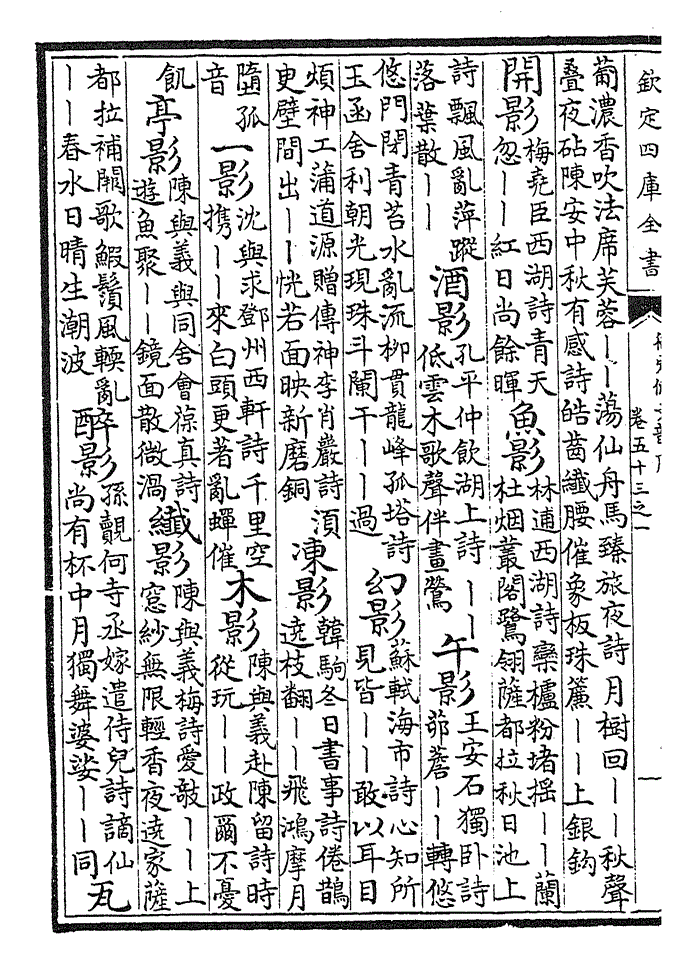 欽定四庫全書
卷五十三之一
葡濃香吹法席芙蓉——蕩仙舟馬臻旅夜詩月樹回——秋聲
疊夜砧陳安中秋有感詩皓齒纖腰催象板珠簾——上銀鈎
開影
梅堯臣西湖詩青天
忽——紅日尚餘暉
魚影
林逋西湖詩欒櫨粉堵搖——蘭
杜烟叢閣鷺翎薩都拉秋日池上
詩飄風亂萍蹤
落葉散——
酒影
孔平仲飲湖上詩——
低雲木歌聲伴畫鶯
午影
王安石獨卧詩
茆簷——轉悠
悠門閉青苔水亂流柳貫龍峰孤塔詩
玉函舍利朝光現珠斗闌干——過
幻影
蘇軾海市詩心知所
見皆——敢以耳目
煩神工蒲道源贈傳神李肖巖詩須
更壁間出——恍若面映新磨銅
凍影
韓駒冬日書事詩倦鵲
遶枝翻——飛鴻摩月
墮孤
音
一影
沈與求鄧州西軒詩千里空
携——來白頭更著亂蟬催
木影
陳與義赴陳留詩時
從玩——政爾不憂
飢
亭影
陳與義與同舍會葆真詩
遊魚聚——鏡面散微渦
纖影
陳與義梅詩愛敧——上
窓紗無限輕香夜遶家薩
都拉補闕歌鰕鬚風輭亂
——春水日晴生潮波
醉影
孫覿何寺丞嫁遣侍兒詩謫仙
尚有杯中月獨舞婆娑——同
瓦